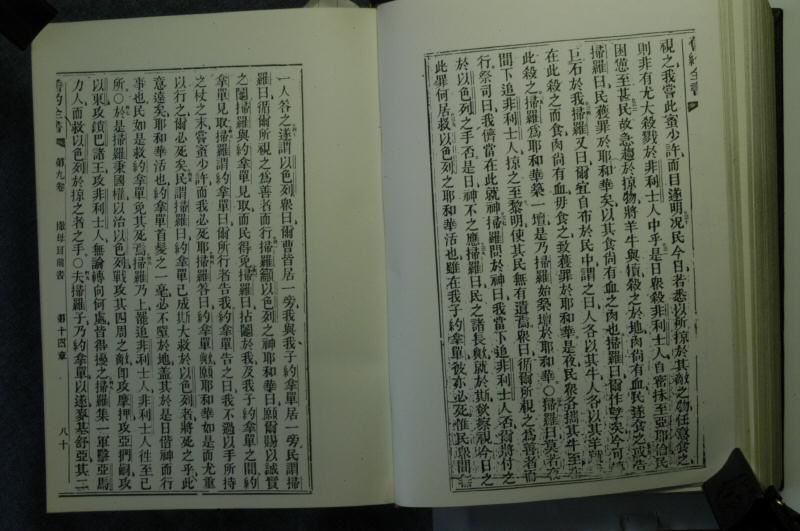 舊約全書
視之我嘗此蜜少許而目遂明況民今日若悉以所掠於其敵之物任意食之
則非有尤大殺戮於非利士人中乎是日眾殺非利士人自密抹至亞耶倫民
困憊至甚民故急趨於掠物將羊牛與犢殺之於地肉尚有血民遂食之或告
掃羅曰民獲罪於耶和華矣以其食尚有血之肉也掃羅曰爾作孽矣今可
巨石於我掃羅又曰爾宜自布於民中謂之曰人各以其牛人各以其羊
在此殺之而食肉尚有血毋食之致獲罪於耶和華是夜民眾各攜其牛至
此殺之掃羅爲耶和華築一壇是乃掃羅始築壇於耶和華○掃羅曰
間下追非利士人掠之至黎明使其民無有遺焉眾曰循爾所視之爲善者而
行祭司曰我儕當在此就神掃羅問於神曰我當下追非利士人否爾將付之
於以色列之手否是日神不之應掃羅曰民之諸長歟就於斯歟察視今日之
此罪何居救以色列之耶和華活也雖在我子約拿單彼亦必死惟民眾間
一人答之遂謂以色列眾曰爾曹皆居一旁我與我子約拿單居一旁民謂掃
羅曰循爾所視之爲善者而行掃羅籲以色列之神耶和華曰願爾賜以誠實
之鬮掃羅與約拿單見取而民得免掃羅曰拈鬮於我及我子約拿單之間約
拿單見取掃羅謂約拿單曰爾所行者告我約拿單告之曰我不過以手所持
之杖之末嘗蜜少許而我必死耶掃羅答曰約拿單歟願耶和華如是而尤重
以行之爾必死矣民謂掃羅曰約拿單已成斯大救於以色列者將死之乎此
意遠矣耶和華活也約拿單首髮之一毫必不墮於地蓋其於是日偕神而行
事也民如是救約拿單免其死焉掃羅乃上罷追非利士人非利士人往至己
所○於是掃羅秉國權以治以色列戰攻其四周之敵即攻摩押攻亞捫嗣攻
以東攻鎖巴諸王攻非利士人無論轉向何處皆得擾之掃羅集一軍擊亞馬
力人而救以色列於掠之者之手○夫掃羅子乃約拿單以遂麥基舒亞其二
舊約全書 第九卷 撒母耳前書 第十四章 八十